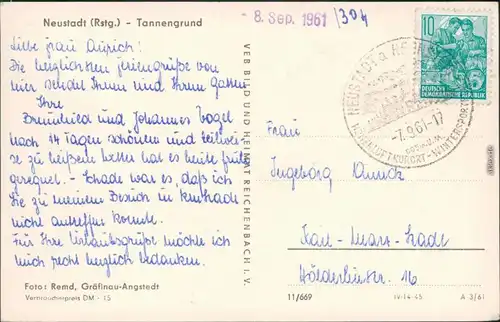 Neustadt (Rstg.) - Tannengrund
- 8. Sep. 1961 /304
Liebe Frau Aurich!
Die herzlichsten Feriengrüße von
hier sendet Ihnen und Ihrem Gatten
Ihre
und Johannes Vogel
nach 14 Tagen schönem und teilwei-
se zu heißem Wetter hat es heute früh
geregnet. - Schade war es, daß ich
Sie zu meinem Besuch in
nicht antreffen konnte.
Für Ihre Urlaubsgrüße möchte ich
mich recht herzlich bedanken.
Foto: Remd, Gräfinau-Angstedt
Verbraucherpreis DM -.15
VEB BILD UND HEIMAT REICHENBACH I. V.
10
DEUTSCHE
DEMOKRATISCHE REPUBLIK
NEUSTADT a. RENNSTEIG
-7.9.61-17
HÖHENLUFTKURORT - WINTERSPORT
Frau
Ingeborg
Karl-Marx-Stadt
Hölderlinstr. 16
11/669
IV-14-45
A 3/61